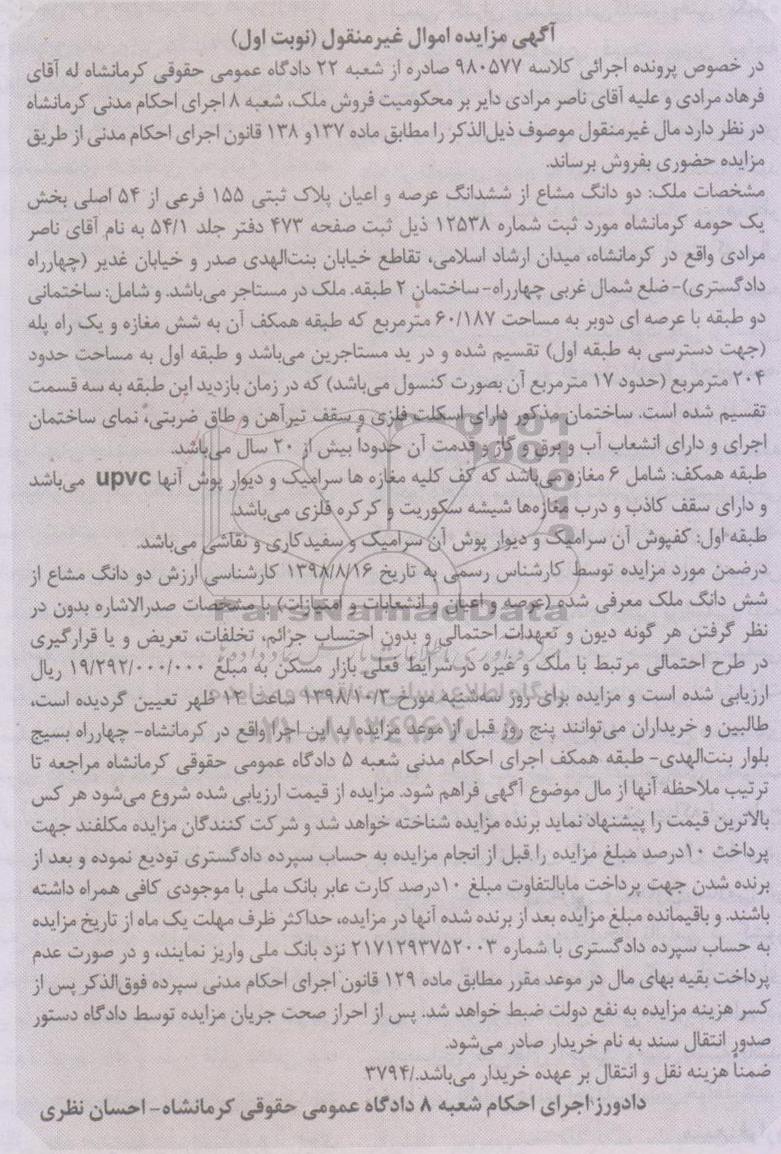 آگهی مزایده اموال غیرمنقول (نوبت اول)
در خصوص پرونده اجرائی کلاسه ۹۸۰۵۷۷ صادره از شعبه ۲۲ دادگاه عمومی حقوقی کرمانشاه له آقای
فرهاد مرادی و علیه آقای ناصر مرادی دایر بر محکومیت فروش ملک، شعبه ۸ اجرای احکام مدنی کرمانشاه
در نظر دارد مال غیرمنقول موصوف ذیل‌الذکر را مطابق ماده ۱۳۷و ۱۳۸ قانون اجرای احکام مدنی از طریق
مزایده حضوری بفروش برساند.
مشخصات ملک: دو دانگ مشاع از ششدانگ عرصه و اعیان پلاک ثبتی ۱۵۵ فرعی از ۵۴ اصلی بخش
یک حومه کرمانشاه مورد ثبت شماره ۱۲۵۳۸ ذیل ثبت صفحه ۴۷۳ دفتر جلد ۵۴/۱ به نام آقای ناصر
مرادی واقع در کرمانشاه، میدان ارشاد اسلامی، تقاطع خیابان بنت‌الهدی صدر و خیابان غدیر (چهارراه
دادگستری)- ضلع شمال غربی چهارراه- ساختمان ۲ طبقه. ملک در مستاجر می‌باشد. و شامل: ساختمانی
دو طبقه با عرصه ای دوبر به مساحت ۶۰/۱۸۷ مترمربع که طبقه همکف آن به شش مغازه و یک راه پله
(جهت دسترسی به طبقه اول) تقسیم شده و در ید مستاجرین می‌باشد و طبقه اول به مساحت حدود
۲۰۴ مترمربع (حدود ۱۷ مترمربع آن بصورت کنسول می‌باشد) که در زمان بازدید این طبقه به سه قسمت
تقسیم شده است. ساختمان مذکور دارای اسکلت فلزی و سقف تیرآهن و طاق ضربتی، نمای ساختمان
اجرای و دارای انشعاب آب و برق و گاز و قدمت آن حدوداً بیش از ۲۰ سال می‌باشد.
طبقه همکف: شامل ۶ مغازه می‌باشد که کف کلیه مغازه ها سرامیک و دیوار پوش آنها upvc می‌باشد
و دارای سقف کاذب و درب مغازه‌ها شیشه سکوریت و کرکره فلزی می‌باشد.
طبقه اول: کفپوش آن سرامیک و دیوار پوش آن سرامیک و سفیدکاری و نقاشی می‌باشد.
درضمن مورد مزایده توسط کارشناس رسمی به تاریخ ۱۳۹۸/۸/۱۶ کارشناسی ارزش دو دانگ مشاع از
شش دانگ ملک معرفی شده (عرصه و اعیان و انشعابات و امتیازات) با مشخصات صدرالاشاره بدون در
نظر گرفتن هر گونه دیون و تعهدات احتمالی و بدون احتساب جرائم، تخلفات، تعریض و یا قرارگیری
در طرح احتمالی مرتبط با ملک و غیره در شرایط فعلی بازار مسکن به مبلغ ۱۹/۲۹۲/۰۰۰/۰۰۰ ریال
ارزیابی شده است و مزایده برای روز سه‌شنبه مورخ ۱۳۹۸/۱۰/۳ ساعت ۱۲ ظهر تعیین گردیده است،
طالبین و خریداران می‌توانند پنج روز قبل از موعد مزایده به این اجرا واقع در کرمانشاه- چهارراه بسیج
بلوار بنت‌الهدی- طبقه همکف اجرای احکام مدنی شعبه ۵ دادگاه عمومی حقوقی کرمانشاه مراجعه تا
ترتیب ملاحظه آنها از مال موضوع آگهی فراهم شود. مزایده از قیمت ارزیابی شده شروع می‌شود هر کس
بالاترین قیمت را پیشنهاد نماید برنده مزایده شناخته خواهد شد و شرکت کنندگان مزایده مکلفند جهت
پرداخت ۱۰درصد مبلغ مزایده را قبل از انجام مزایده به حساب سپرده دادگستری تودیع نموده و بعد از
برنده شدن جهت پرداخت مابالتفاوت مبلغ ۱۰درصد کارت عابر بانک ملی با موجودی کافی همراه داشته
باشند. و باقیمانده مبلغ مزایده بعد از برنده شده آنها در مزایده، حداکثر ظرف مهلت یک ماه از تاریخ مزایده
به حساب سپرده دادگستری با شماره ۲۱۷۱۲۹۳۷۵۲۰۰۳ نزد بانک ملی واریز نمایند، و در صورت عدم
پرداخت بقیه بهای مال در موعد مقرر مطابق ماده ۱۲۹ قانون اجرای احکام مدنی سپرده فوق‌الذکر پس از
کسر هزینه مزایده به نفع دولت ضبط خواهد شد. پس از احراز صحت جریان مزایده توسط دادگاه دستور
صدور انتقال سند به نام خریدار صادر می‌شود.
ضمناً هزینه نقل و انتقال بر عهده خریدار می‌باشد./۳۷۹۴
دادورز اجرای احکام شعبه ۸ دادگاه عمومی حقوقی کرمانشاه- احسان نظری
ParsNamadData
۰۲۱-۸۸۳۴۹۶۷۰-۵